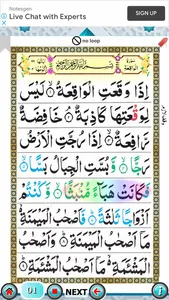 Notesgen
Live Chat with Experts
SIGN UP
no loop
بِسْمِ اللّٰهِ الرَّحْمٰنِ الرَّحِيْمِ
اِذَا وَقَعَتِ الْوَاقِعَةُ ۙ لَيْسَ
لِوَقْعَتِهَا كَاذِبَةٌ ۘ خَافِضَةٌ
رَّافِعَةٌ ۙ اِذَا رُجَّتِ الْاَرْضُ
رَجًّا ۙ وَّبُسَّتِ الْجِبَالُ بَسًّا ۙ
فَكَانَتْ هَبَآءً مُّنْۢبَثًّا ۙ وَّكُنْتُمْ
اَزْوَاجًا ثَلٰثَةً ؕ فَاَصْحٰبُ الْمَيْمَنَةِ ۙ
مَاۤ اَصْحٰبُ الْمَيْمَنَةِ ؕ وَاَصْحٰبُ
الْمَشْـَٔمَةِ ۙ مَاۤ اَصْحٰبُ الْمَشْـَٔمَةِ ؕ
NEXT